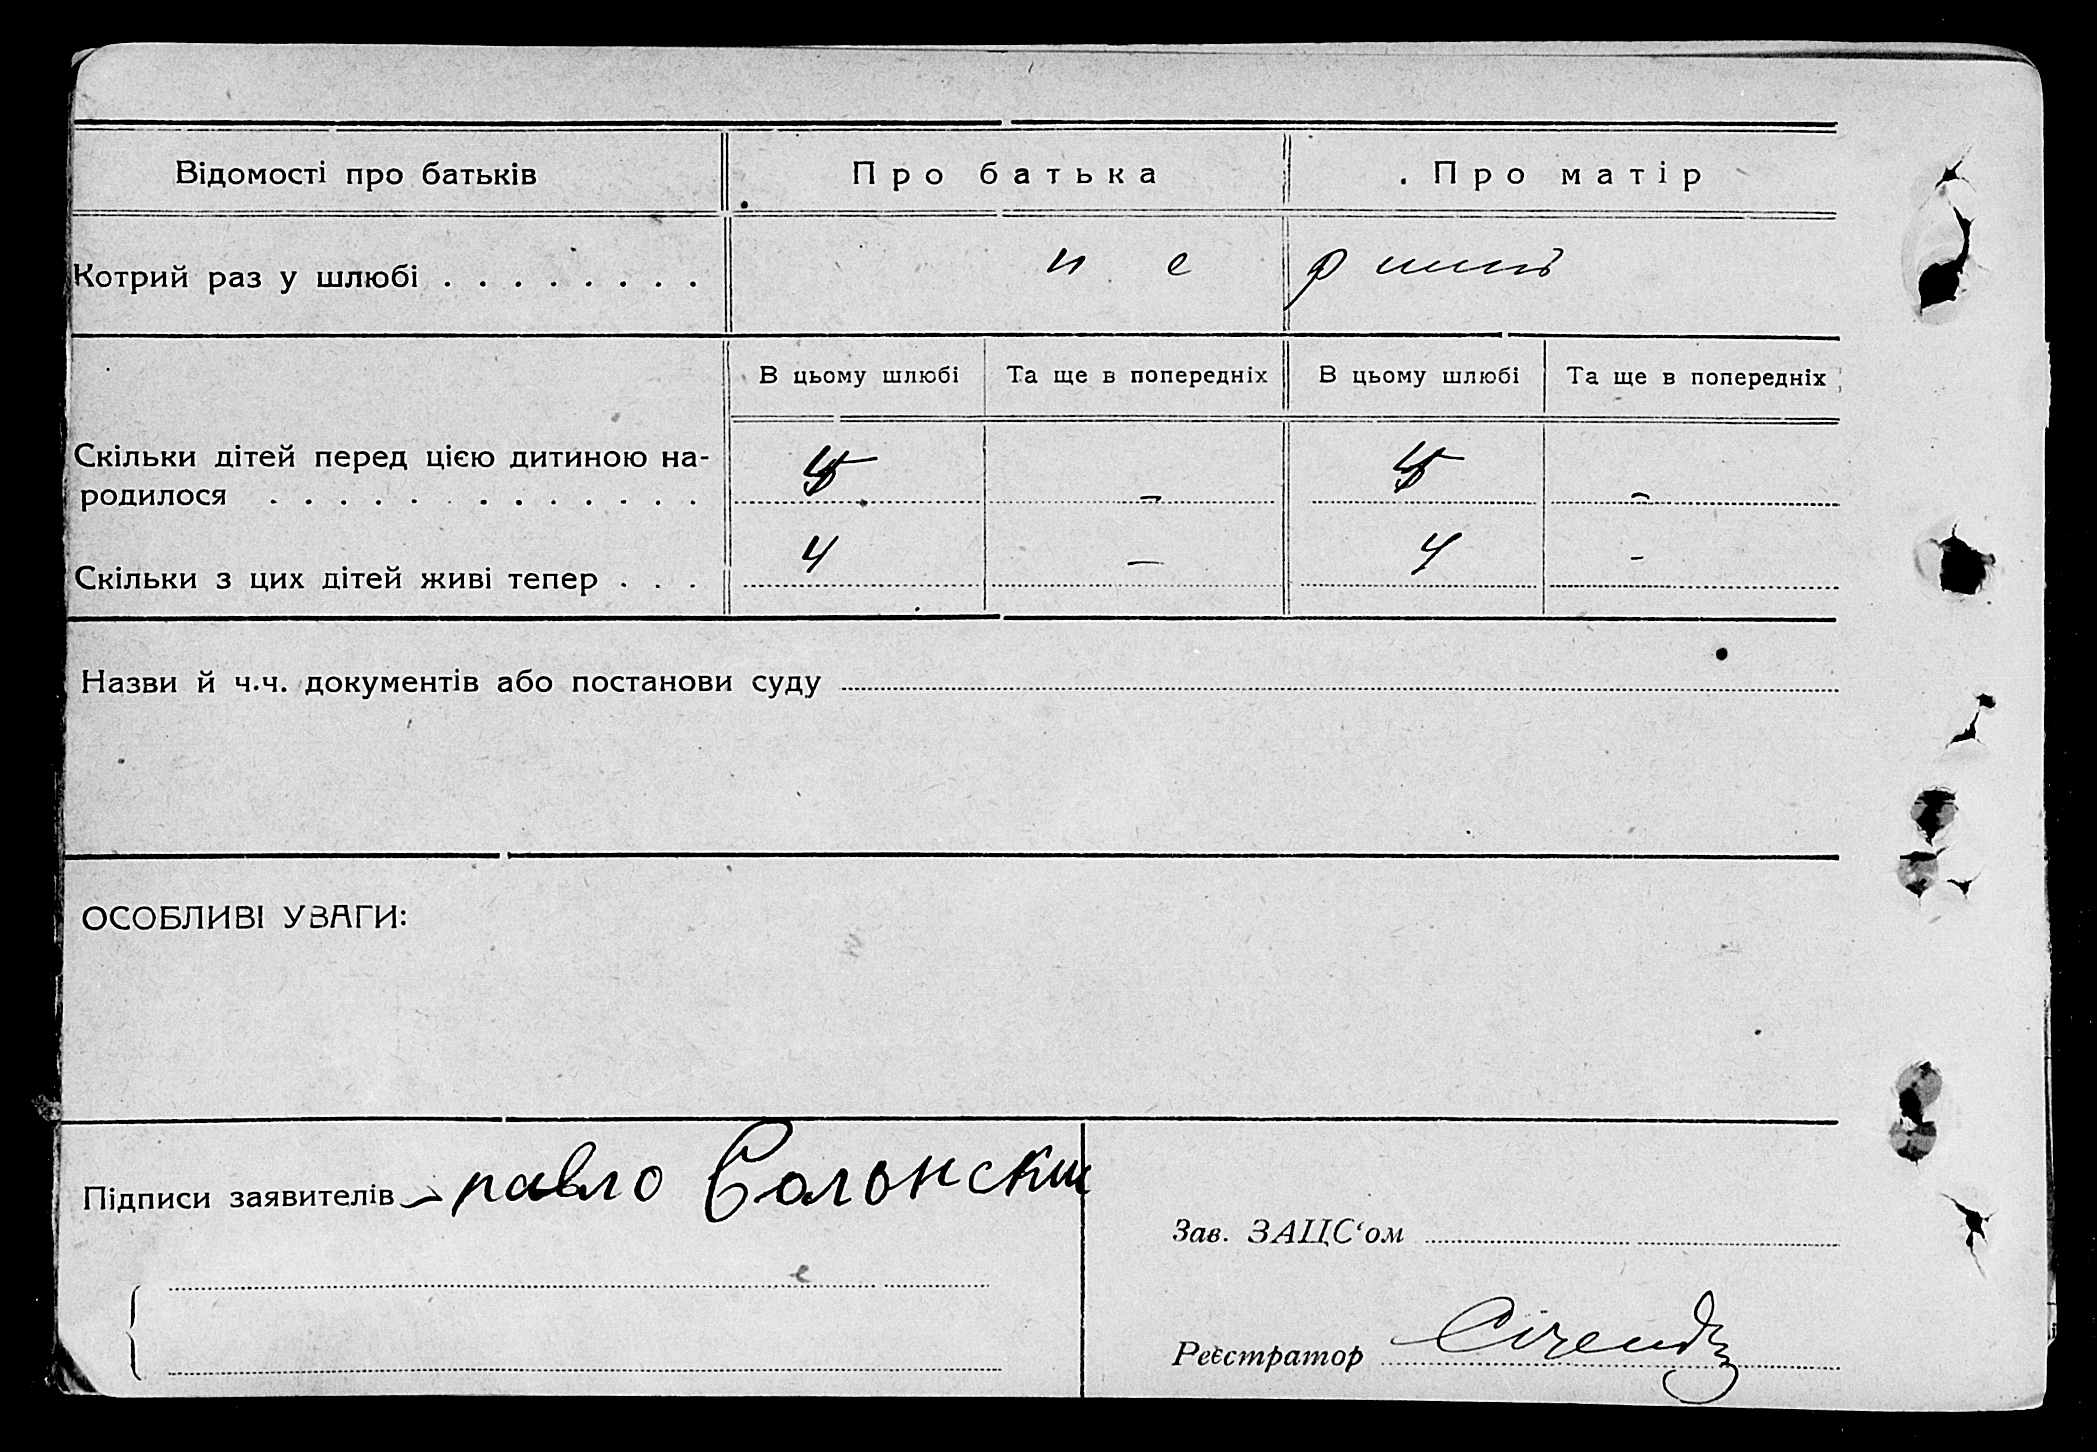 Відомості про батьків Про батька Про матір
Котрий раз у шлюбі . . . . . . . .
В цьому шлюбі Та ще в попередніх В цьому шлюбі Та ще в попередніх
Скільки дітей перед цією дитиною на-
родилося . . . . . . . . . . . . . – –
Скільки з цих дітей живі тепер . . . 4 — 4 -
Назви й ч.ч. документів або постанови суду
ОСОБЛИВІ УВАГИ:
Підписи заявителів павло Солонски
Зав. ЗАЦС‘ом
Реєстратор